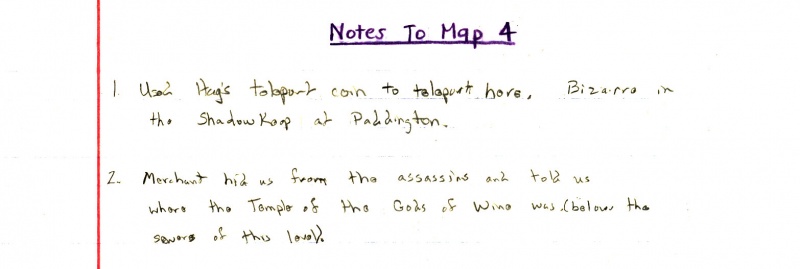 Notes To Map 4
1. Used Hag's teleport coin to teleport here, Bizarro in
the Shadow Keep at Paddington.
2. Merchant hid us from the assassins and told us
where the Temple of the Gods of Wine was. (below the
sewers of this level).